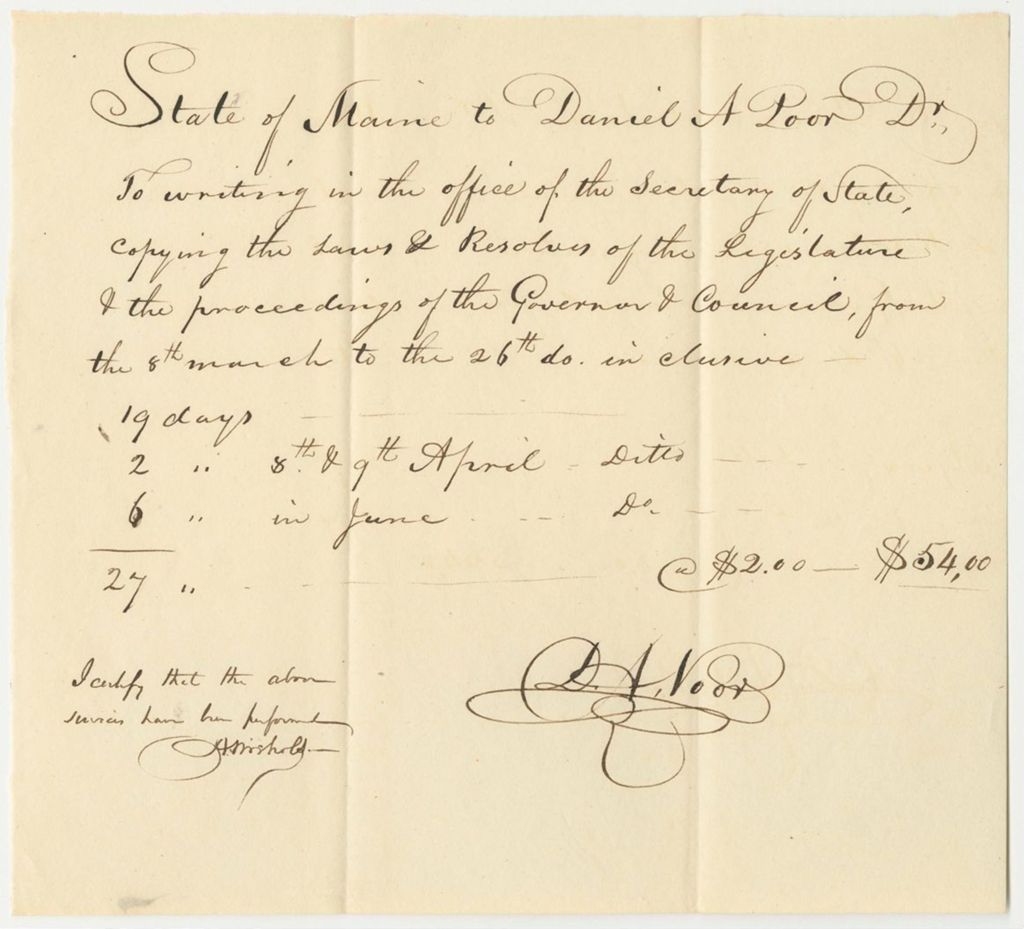 State of Maine to Daniel A Poor Dr.
To writing in the office of the Secretary of State,
copying the Laws & Resolves of the Legislature
& the proceedings of the Governor & Council, from
the 8th march to the 26th do. in clusive —
19 days
2 " 8th & 9th April - Ditto
6 " in June Do.
27 " @ $2.00 — $54,00
D. A. Poor
I certify that the above
services have been performed